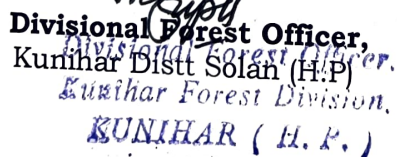 Divisional Forest Officer,
Kunihar Distt Solan (H.P)
Divisional Forest Officer.
Kunihar Forest Division.
KUNIHAR ( H. P. )